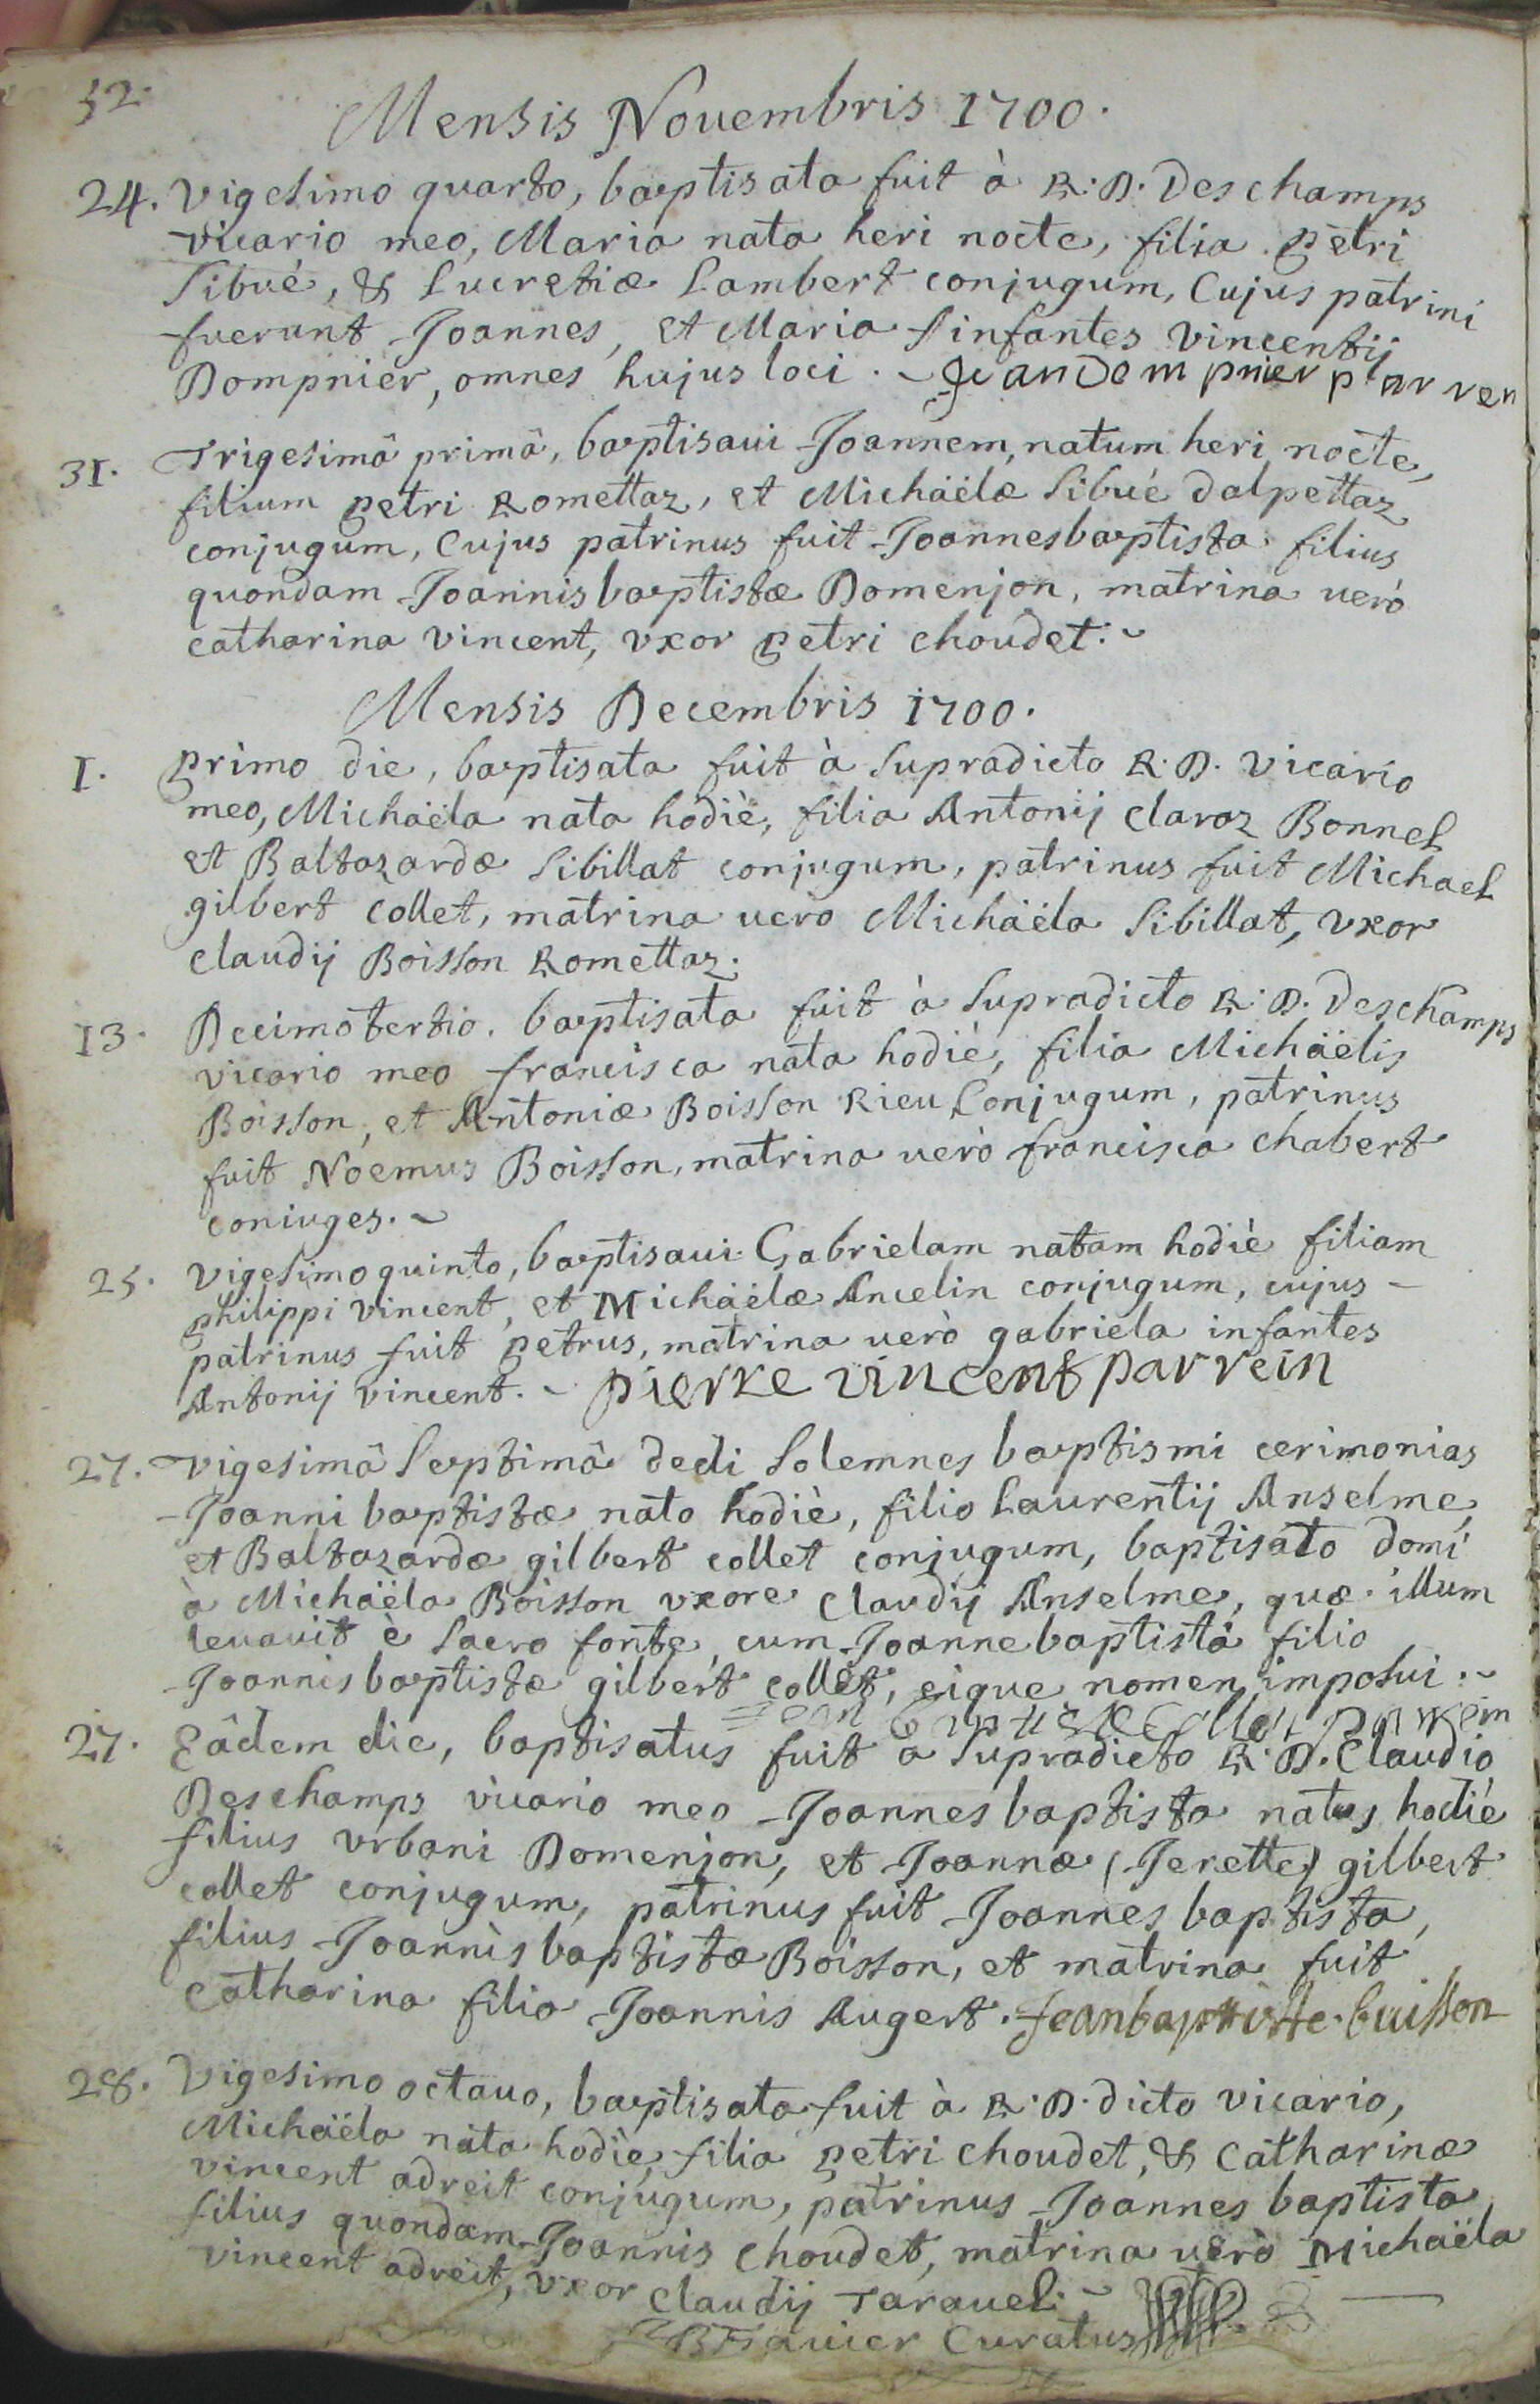 52.
Mensis Novembris 1700.
24. vigesimo quarto, baptisata fuit à R.D. Deschamps
vicario meo, Maria nata heri nocte, filia petri
Sibué, & Lucretiæ Lambert conjugum, Cujus patrini
fuerunt Joannes, et Maria infantes vincentij
Dompnier, omnes hujus loci. - Jeandompnier parren
31. Trigesimâ primâ, baptisaui Joannem, natum heri nocte,
filium petri Romettaz, et Michäelæ Sibué dalpettaz
conjugum, Cujus patrinus fuit Joannesbaptista filius
quondam Joannisbaptistæ Domenjon, matrina uerò
catharina vincent, vxor petri choudet. ~
Mensis Decembris 1700.
I. primo die, baptisata fuit à Supradicto R.D. vicario
meo, Michäela nata hodiè, filia Antonij claraz Bonnel
et Baltazardæ Sibillat conjugum, patrinus fuit Michael
gilbert collet, matrina uero Michäela Sibillat, vxor
claudij Boisson Romettaz.
13. Decimotertio. baptisata fuit à Supradicto R.D. Deschamps
vicario meo francisca nata hodiè, filia Michäelis
Boisson, et Antoniæ Boisson Rieu Conjugum, patrinus
fuit Noemus Boisson, matrina uerò francisca chabert
coniuges. ~
25. vigesimoquinto, baptisaui Gabrielam natam hodiè filiam
philippi vincent, et Michäelæ Ancelin conjugum, cujus -
patrinus fuit petrus, matrina uerò gabriela infantes
Antonij vincent. - pierre vincent parrein
27. vigesimâ Septimâ dedi Solemnes baptismi cerimonias
Joanni baptistæ nato hodiè, filio Laurentij Anselme,
et Baltazardæ gilbert collet conjugum, baptisato domi
à Michaëla Boisson vxore claudij Anselme, quæ illum
leuauit è Sacro fonte, cum Joannebaptistâ filio
Joannisbaptistæ gilbert collet, eique nomen imposui. ~
Jean baptiste Collet parrein
27. Eâdem die, baptisatus fuit a Supradicto R.D. Claudio
Deschamps vicario meo Joannes baptista natus hodiè
filius vrbani Domenjon, et Joannæ (Jerette) gilbert
collet conjugum, patrinus fuit Joannes baptista,
filius Joannis baptistæ Boisson, et matrina fuit
Catharina filia Joannis Augert. Jeanbaptiste buisson
28. Vigesimo octauo, baptisata fuit à R.D. dicto vicario,
Michäela nata hodie, filia petri choudet, & Catharinæ
vincent adreit conjugum, patrinus Joannes baptista,
filius quondam Joannis choudet, matrina uerò Michäela
vincent adreit, vxor claudij Tarauel. ~
Curatus